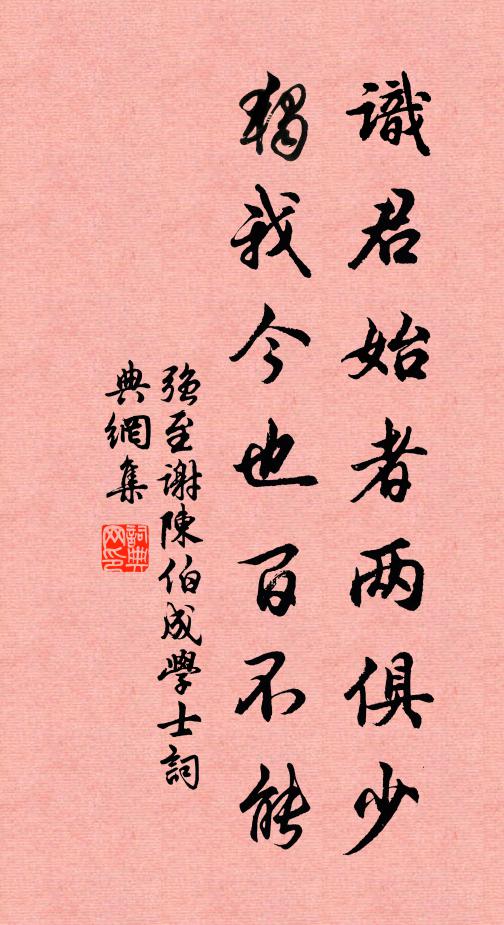 識君始者两俱少
獨我今也百不能
强至谢陳伯成學士詞
典網集
詞典
网印